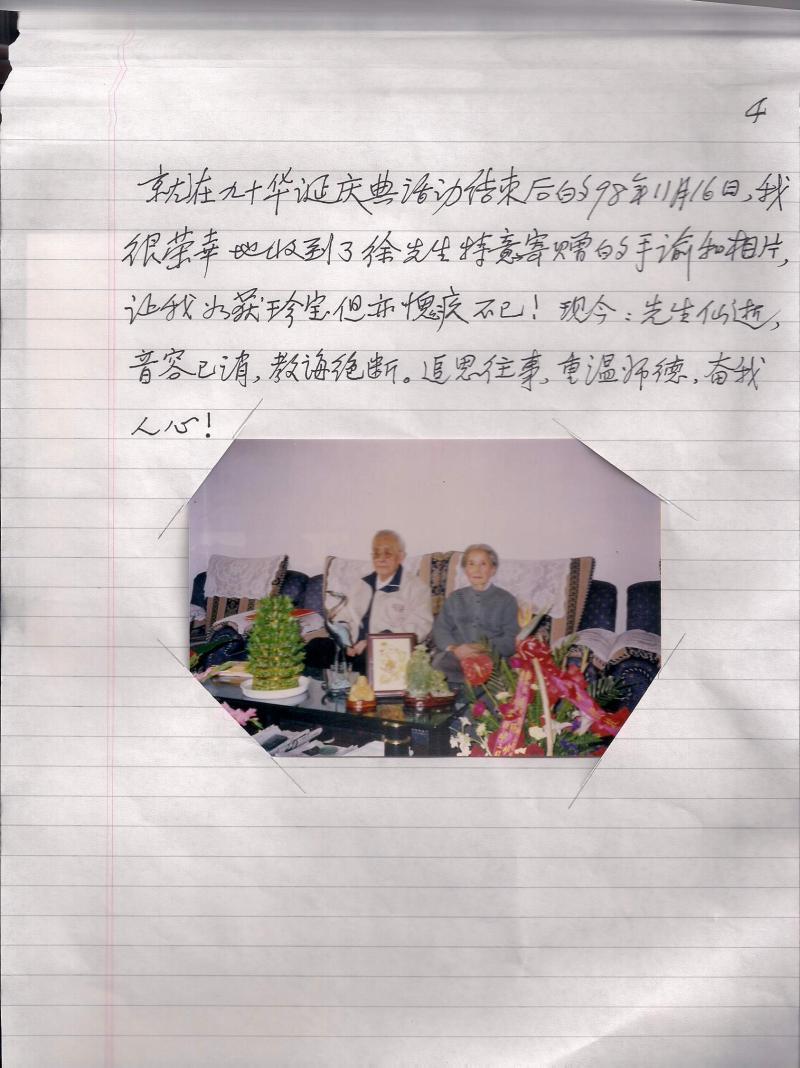 4
就在九十华诞庆典活动结束后的98年11月16日，我
很荣幸地收到了徐先生特意寄赠的手谕和相片，
让我如获珍宝但亦愧疚不已！现今：先生仙逝，
音容已消，教诲绝断。追思往事，重温师德，奋我
人心！